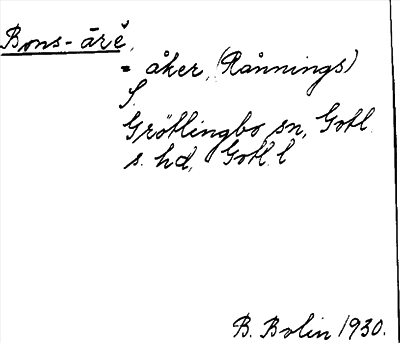 Bons-ārĕ,
= åker, (Rånnings)
S.
Grötlingbo sn, Gotl.
s. hd, Gotl. l
B. Bolin 1930.